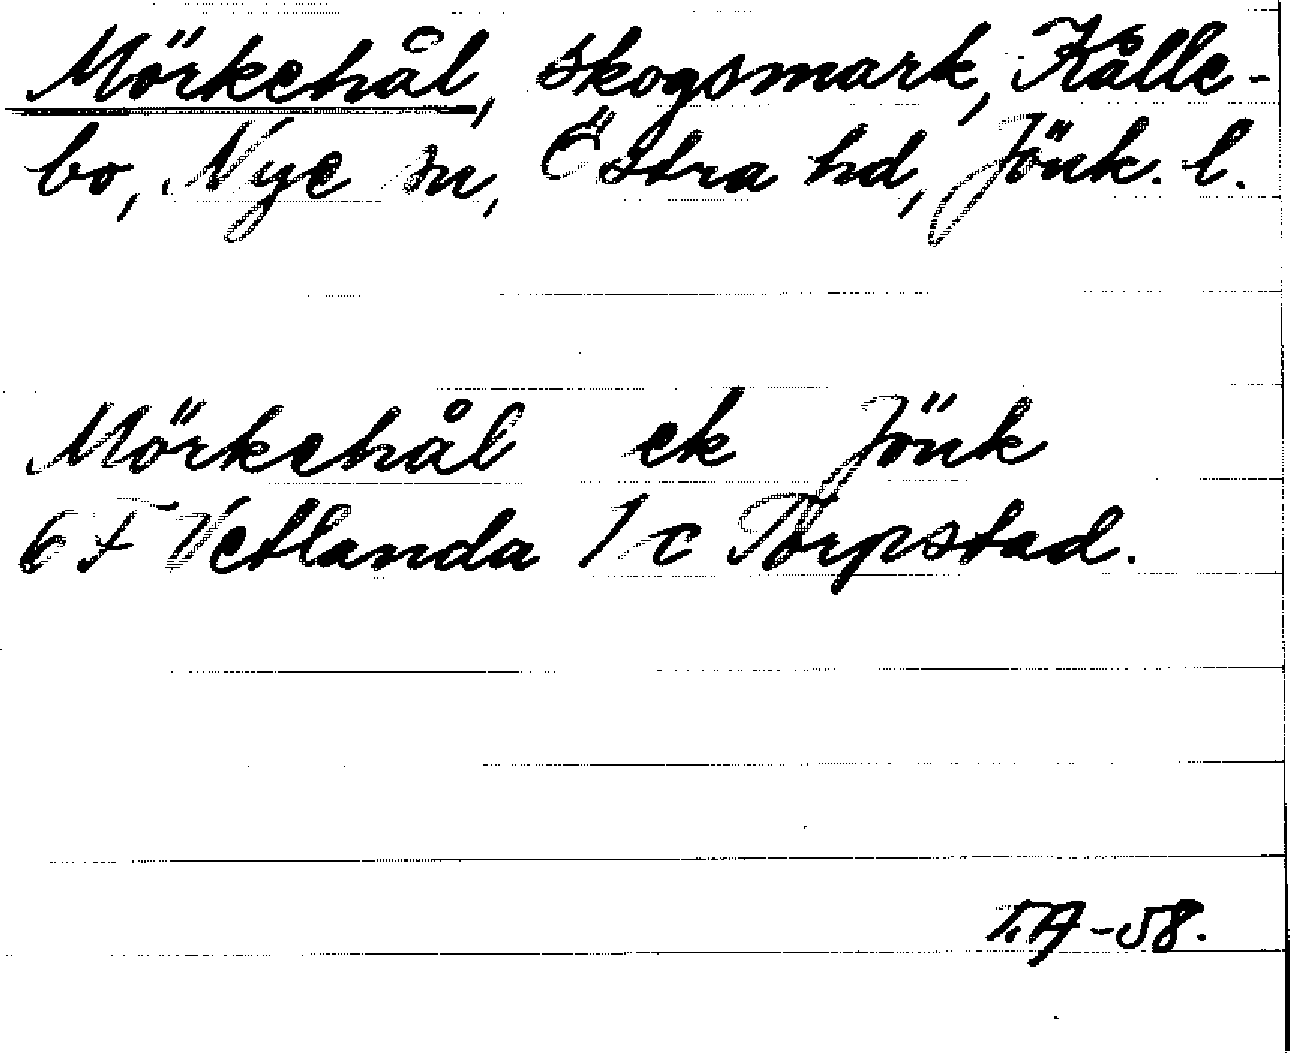 Mörkehål, skogsmark, Kålle-
bo, Nye sn, Östra hd, Jönk. l.
Mörkehål ek Jönk
6 F Vetlanda 1 c Torpstad.
T.A-58.